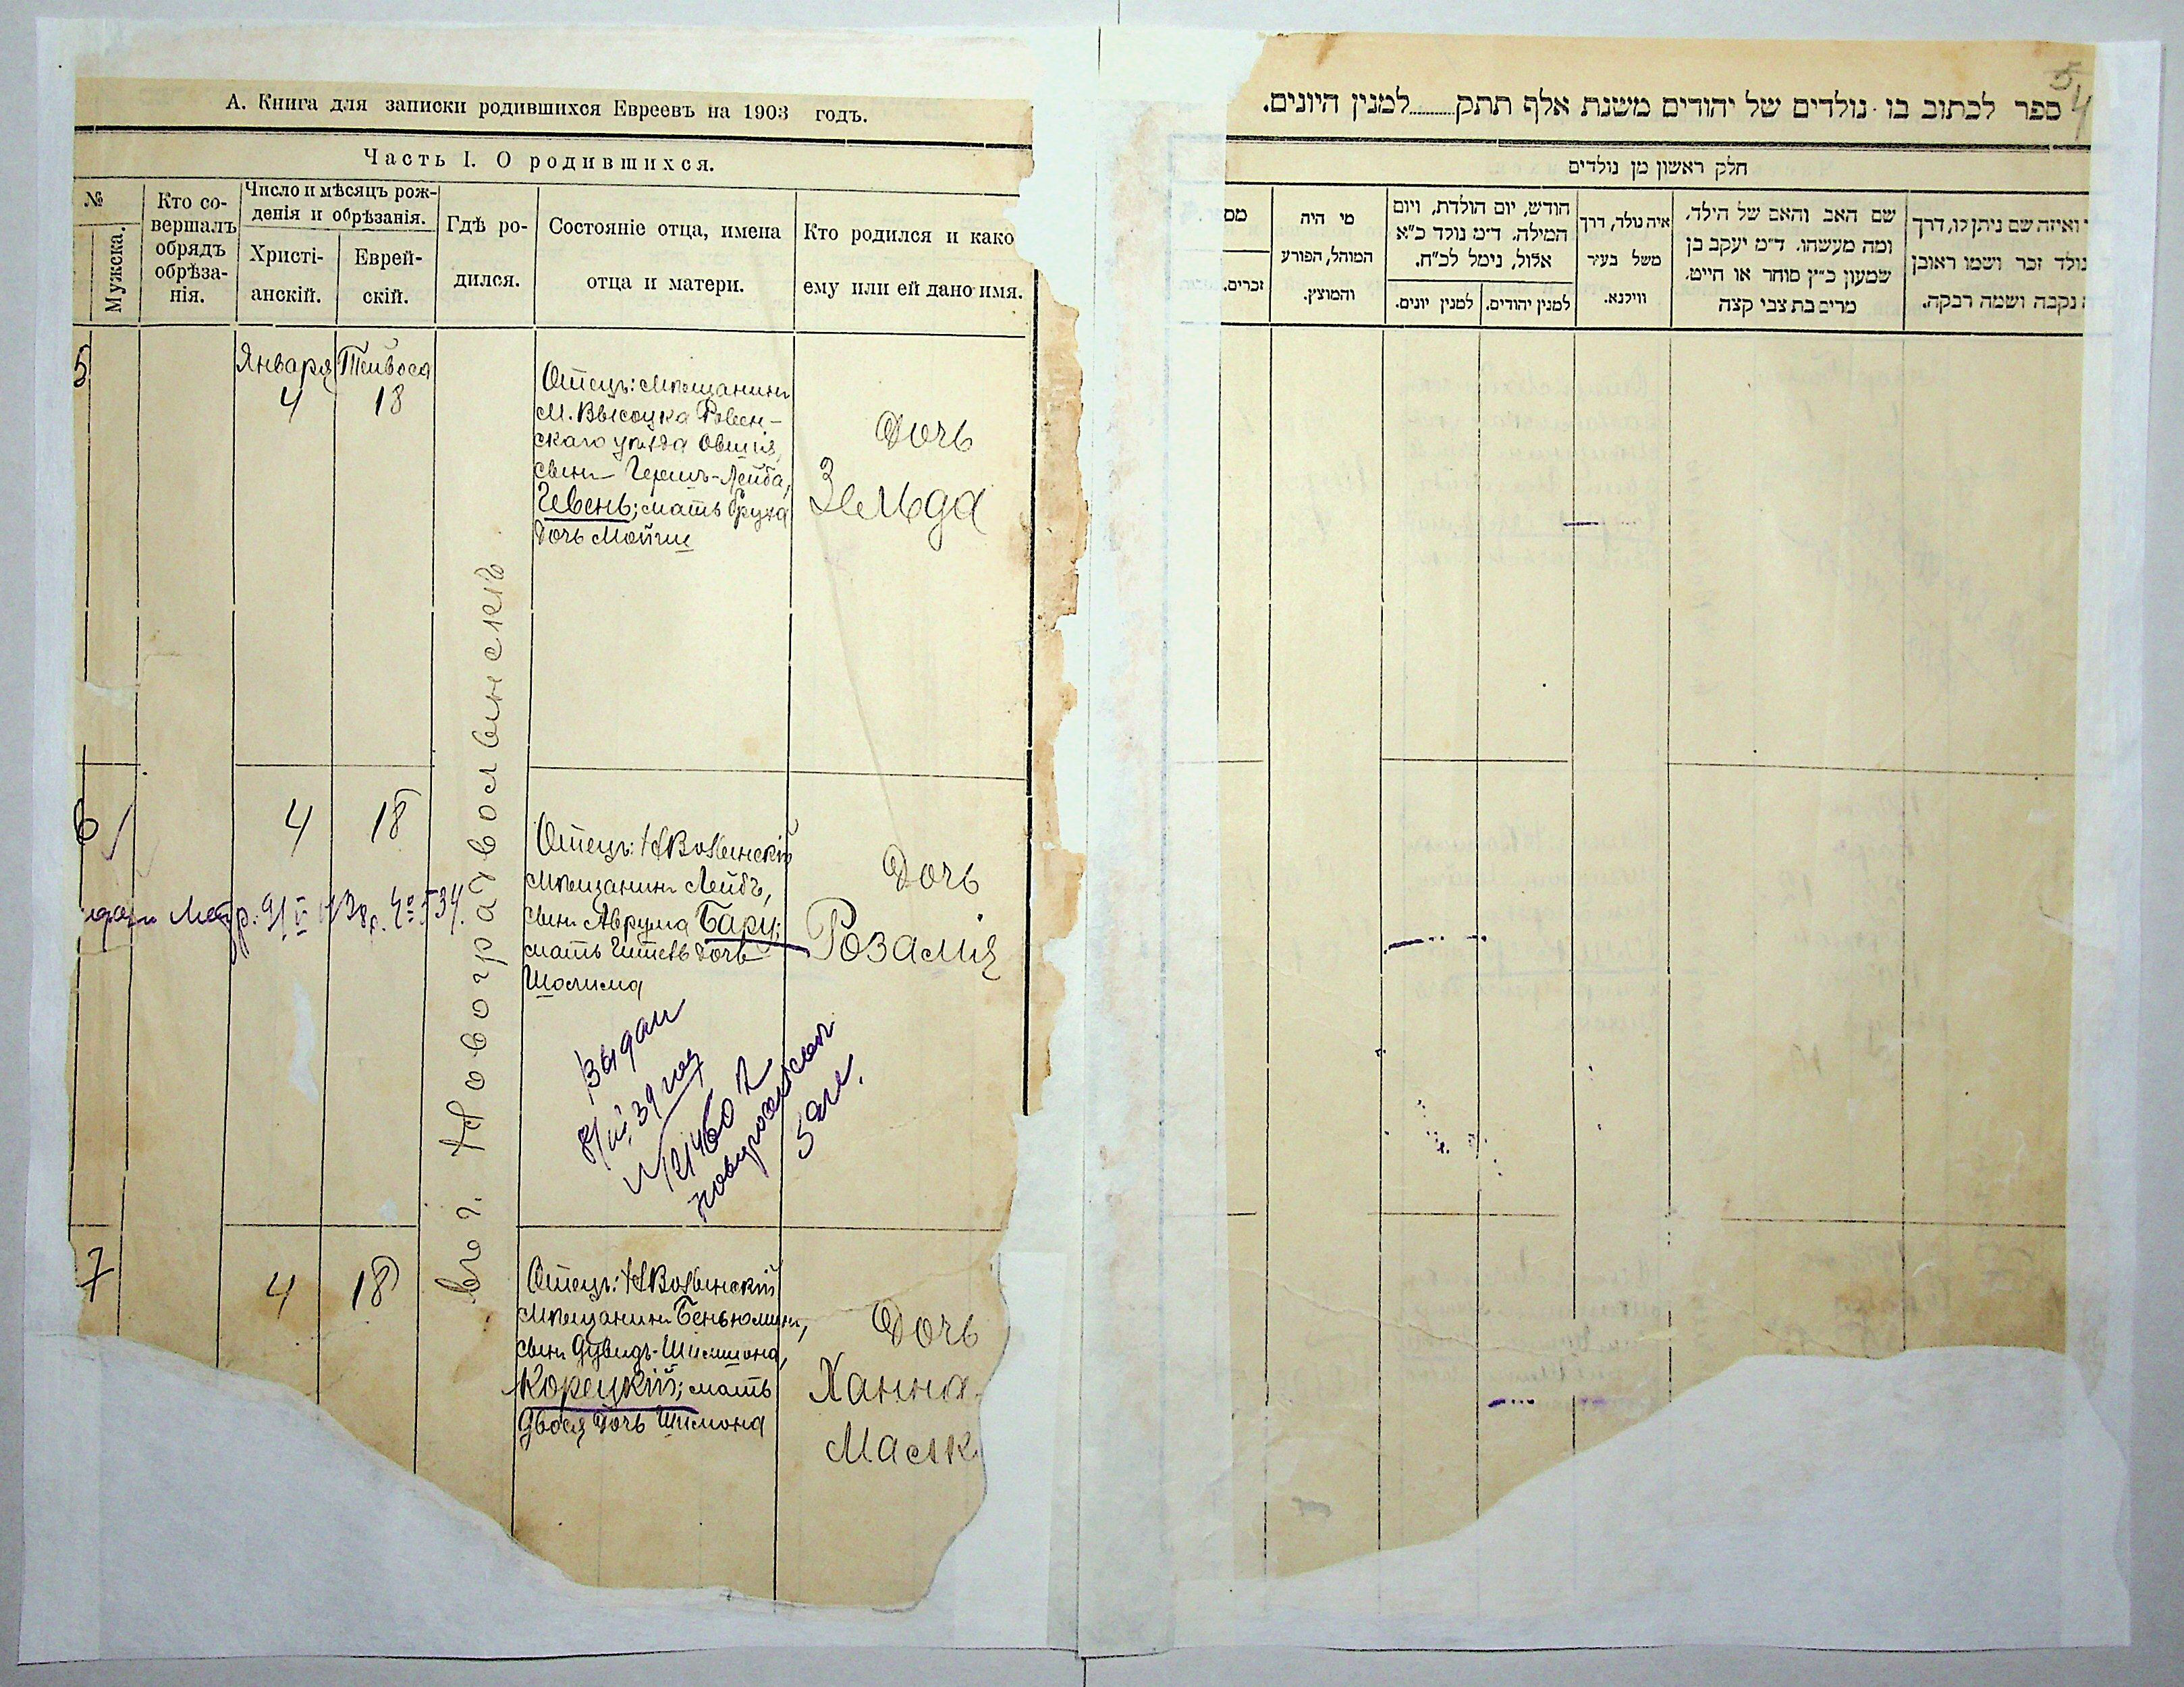 А. Книга для записки родившихся Евреевъ на 1903 годъ.
Часть I. О родившихся.
№
Мужска.
Кто со-
вершалъ
обрядъ
обрѣза-
нія.
Число и мѣсяцъ рож-
денія и обрѣзанія.
Христі-
анскій.
Еврей-
скій.
Гдѣ ро-
дился.
Состояніе отца, имена
отца и матери.
Кто родился и како
ему или ей дано имя.
5
Января
4
Тейвоса
18
Отецъ: мѣщанинъ
м. Высоцка Ровен-
скаго уѣзда Овшія,
сынъ Гершъ-Лейба,
Гевень; мать Бруха
дочь Мойши
Дочь
Зельда
въ г. Новоградволынскѣ
6
4
18
Отецъ: НВолынскій
мѣщанинъ Лейбъ,
сынъ Аврума Бару;
мать Гитель дочь
Шолима
Дочь
Розалія
Выдан
8/III 39 год
№ 21460
7
4
18
Отецъ: НВолынскій
мѣщанинъ Беньюминъ,
сынъ Дувидъ-Шимшона,
Корецкій; мать
Двося дочь Шимона
Дочь
Ханна-
Малк
5
4
ספר לכתוב בו נולדים של יהודים משנת אלף תתק..........למנין היונים.
חלק ראשון מן נולדים
ואיזה שם ניתן לו, דרך
נולד זכר ושמו ראובן
נקבה ושמה רבקה.
שם האב והאם של הילד,
ומה מעשהו. ד״מ יעקב בן
שמעון כ״ץ סוחר או חייט.
מרים בת צבי קצה
איה נולד, דרך
משל בעיר
ווילנא.
חודש, יום הולדת, ויום
המילה. ד״מ נולד כ״א
אלול, נימל לכ״ח.
למנין יהודים.
למנין יונים.
מי היה
המוהל, הפורע
והמוצץ.
מס
זכרים.